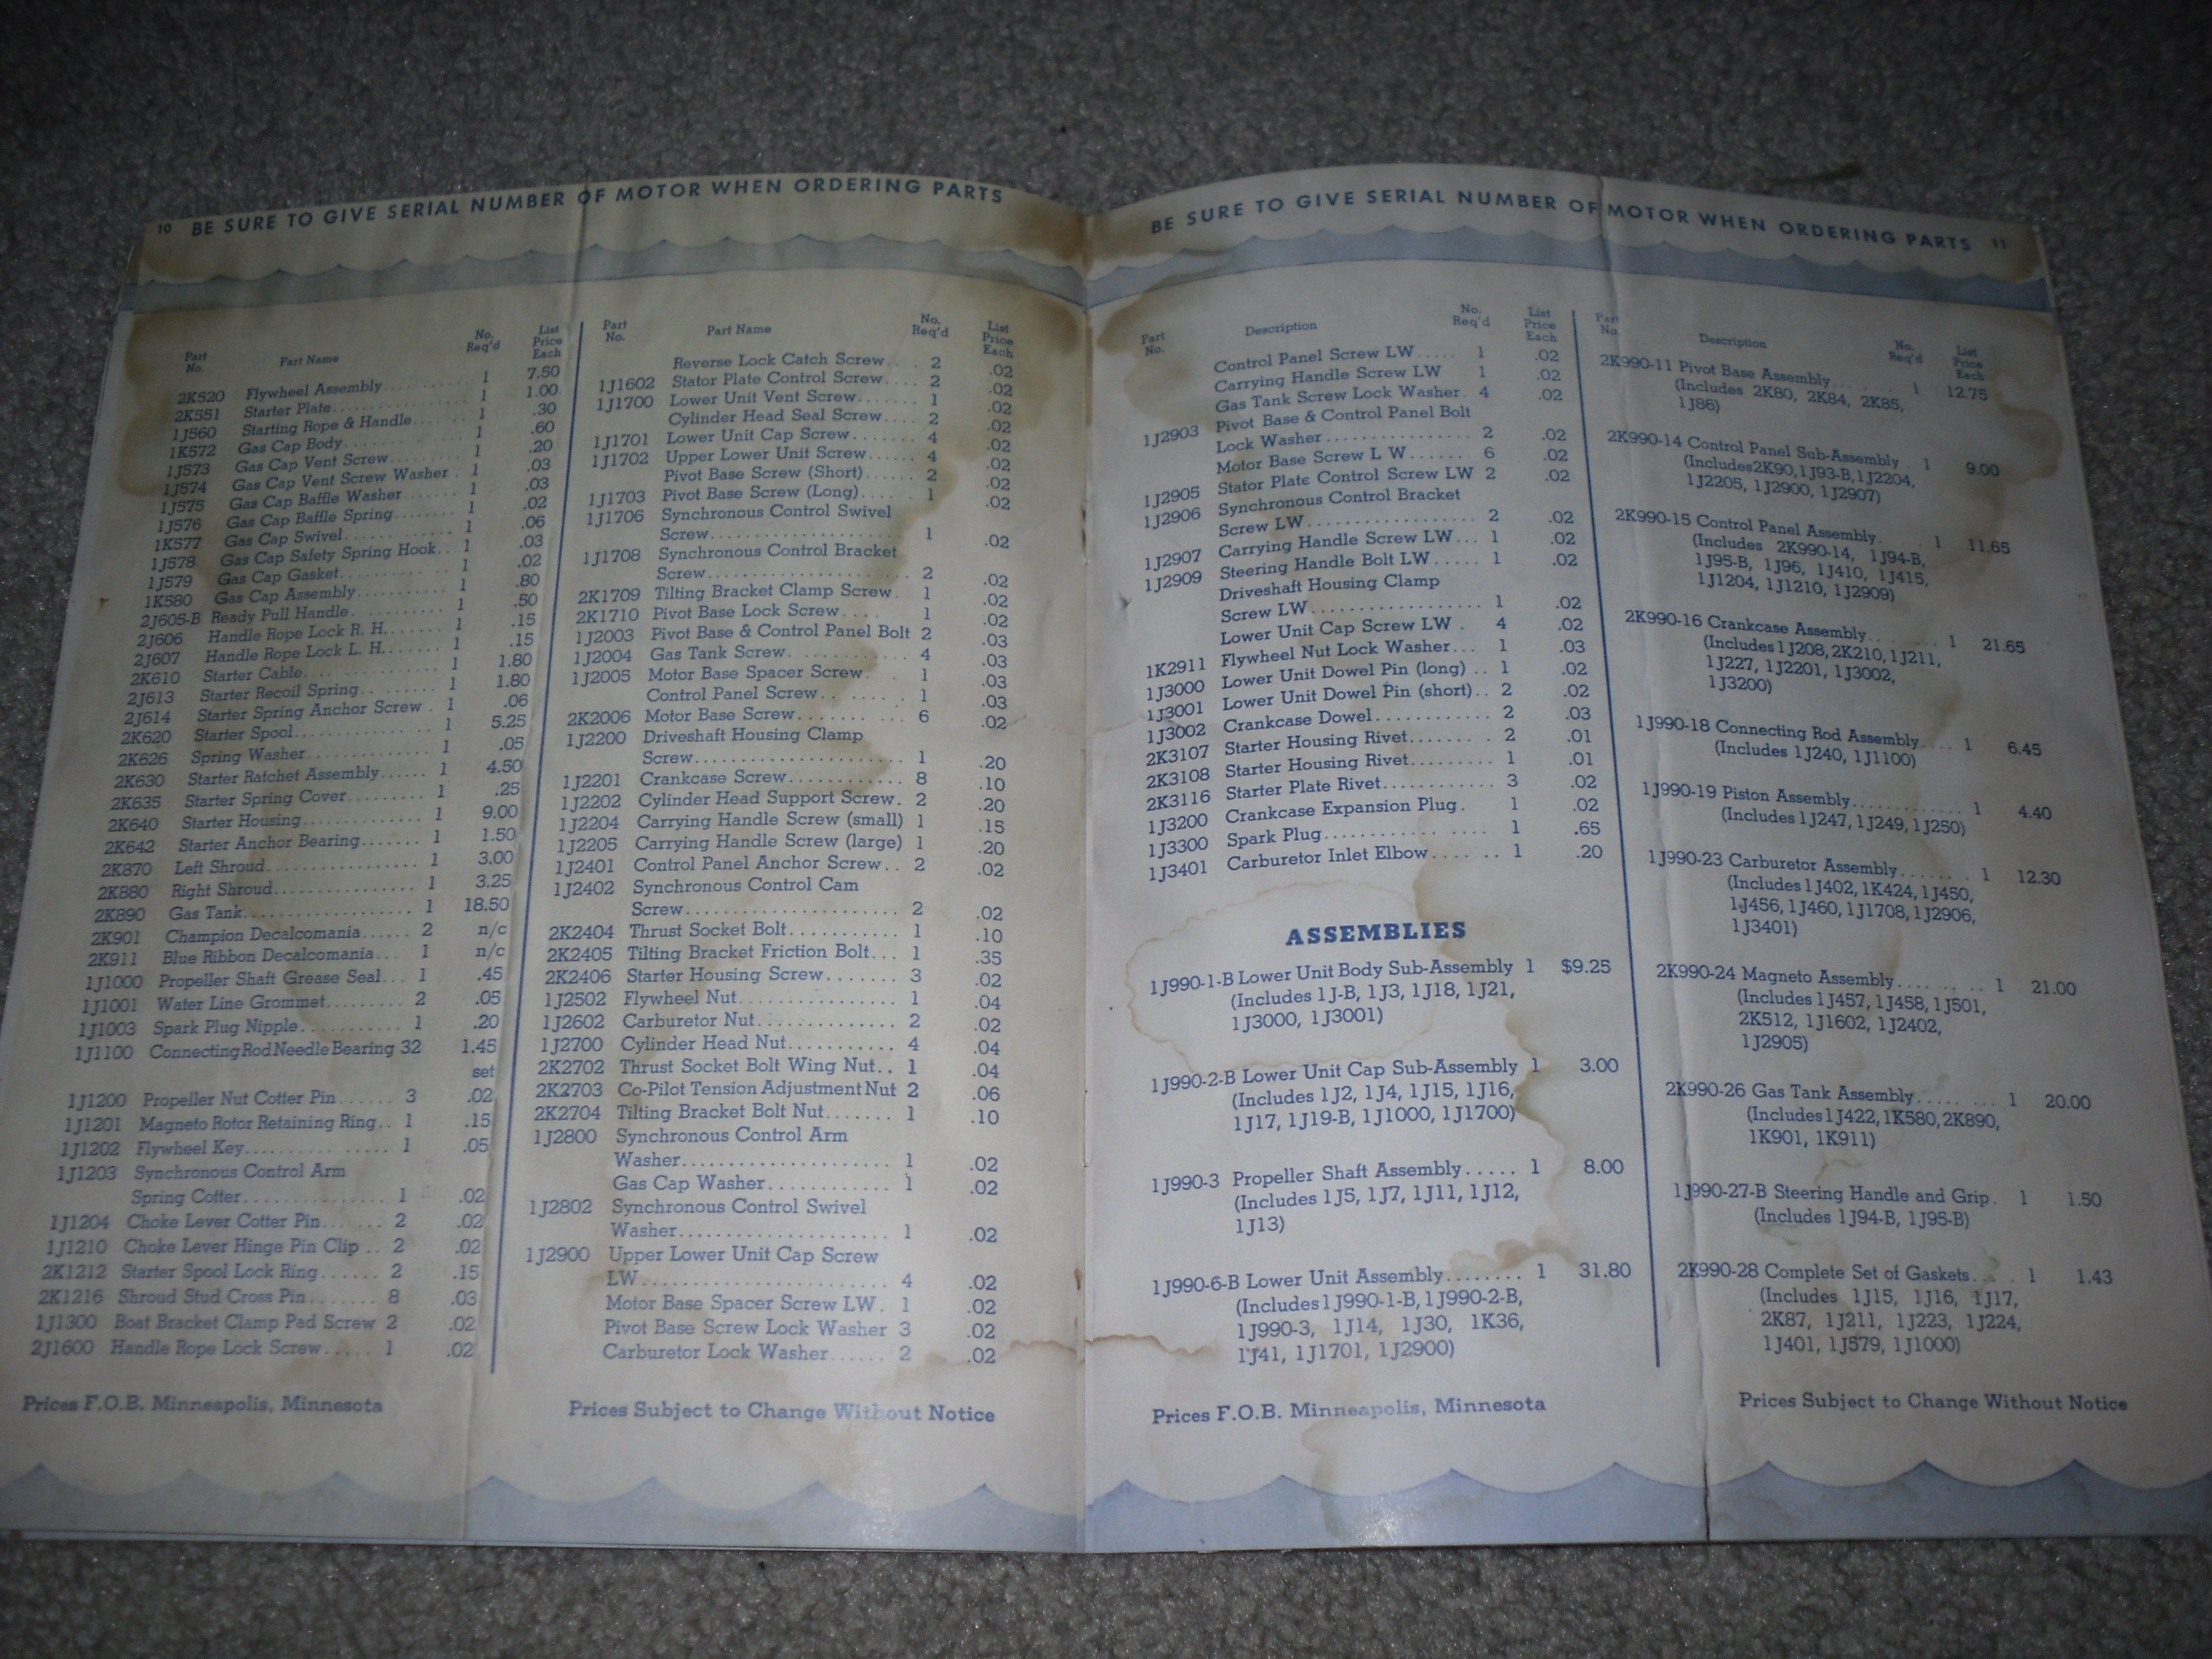 10 BE SURE TO GIVE SERIAL NUMBER OF MOTOR WHEN ORDERING PARTS
Part No. Part Name No. Req'd List Price Each
2K520 Flywheel Assembly 1 7.50
2K551 Starter Plate 1 1.00
1J560 Starting Rope & Handle 1 .30
1K572 Gas Cap Body 1 .60
1J573 Gas Cap Vent Screw 1 .20
1J574 Gas Cap Vent Screw Washer 1 .03
1J575 Gas Cap Baffle Washer 1 .03
1J576 Gas Cap Baffle Spring 1 .02
1K577 Gas Cap Swivel 1 .06
1J578 Gas Cap Safety Spring Hook 1 .03
1J579 Gas Cap Gasket 1 .02
1K580 Gas Cap Assembly 1 .80
2J605-B Ready Pull Handle 1 .50
2J606 Handle Rope Lock R. H. 1 .15
2J607 Handle Rope Lock L. H. 1 .15
2K610 Starter Cable 1 1.80
2J613 Starter Recoil Spring 1 1.80
2J614 Starter Spring Anchor Screw 1 .06
2K620 Starter Spool 1 5.25
2K626 Spring Washer 1 .05
2K630 Starter Ratchet Assembly 1 4.50
2K635 Starter Spring Cover 1 .25
2K640 Starter Housing 1 9.00
2K642 Starter Anchor Bearing 1 1.50
2K870 Left Shroud 1 3.00
2K880 Right Shroud 1 3.25
2K890 Gas Tank 1 18.50
2K901 Champion Decalcomania 2 n/c
2K911 Blue Ribbon Decalcomania 1 n/c
1J1000 Propeller Shaft Grease Seal 1 .45
1J1001 Water Line Grommet 2 .05
1J1003 Spark Plug Nipple 1 .20
1J1100 Connecting Rod Needle Bearing 32 1.45
set
1J1200 Propeller Nut Cotter Pin 3 .02
1J1201 Magneto Rotor Retaining Ring 1 .15
1J1202 Flywheel Key 1 .05
1J1203 Synchronous Control Arm
Spring Cotter 1 .02
1J1204 Choke Lever Cotter Pin 2 .02
1J1210 Choke Lever Hinge Pin Clip 2 .02
2K1212 Starter Spool Lock Ring 2 .15
2K1216 Shroud Stud Cross Pin 8 .03
1J1300 Boat Bracket Clamp Pad Screw 2 .02
2J1600 Handle Rope Lock Screw 1 .02
Part No. Part Name No. Req'd List Price Each
Reverse Lock Catch Screw 2 .02
1J1602 Stator Plate Control Screw 2 .02
1J1700 Lower Unit Vent Screw 1 .02
Cylinder Head Seal Screw 2 .02
1J1701 Lower Unit Cap Screw 4 .02
1J1702 Upper Lower Unit Screw 4 .02
Pivot Base Screw (Short) 2 .02
1J1703 Pivot Base Screw (Long) 1 .02
1J1706 Synchronous Control Swivel
Screw 1 .02
1J1708 Synchronous Control Bracket
Screw 2 .02
2K1709 Tilting Bracket Clamp Screw 1 .02
2K1710 Pivot Base Lock Screw 1 .02
1J2003 Pivot Base & Control Panel Bolt 2 .03
1J2004 Gas Tank Screw 4 .03
1J2005 Motor Base Spacer Screw 1 .03
Control Panel Screw 1 .03
2K2006 Motor Base Screw 6 .02
1J2200 Driveshaft Housing Clamp
Screw 1 .20
1J2201 Crankcase Screw 8 .10
1J2202 Cylinder Head Support Screw 2 .20
1J2204 Carrying Handle Screw (small) 1 .15
1J2205 Carrying Handle Screw (large) 1 .20
1J2401 Control Panel Anchor Screw 2 .02
1J2402 Synchronous Control Cam
Screw 2 .02
2K2404 Thrust Socket Bolt 1 .10
2K2405 Tilting Bracket Friction Bolt 1 .35
2K2406 Starter Housing Screw 3 .02
1J2502 Flywheel Nut 1 .04
1J2602 Carburetor Nut 2 .02
1J2700 Cylinder Head Nut 4 .04
2K2702 Thrust Socket Bolt Wing Nut 1 .04
2K2703 Co-Pilot Tension Adjustment Nut 2 .06
2K2704 Tilting Bracket Bolt Nut 1 .10
1J2800 Synchronous Control Arm
Washer 1 .02
Gas Cap Washer 1 .02
1J2802 Synchronous Control Swivel
Washer 1 .02
1J2900 Upper Lower Unit Cap Screw
LW 4 .02
Motor Base Spacer Screw LW. 1 .02
Pivot Base Screw Lock Washer 3 .02
Carburetor Lock Washer 2 .02
Prices F.O.B. Minneapolis, Minnesota
Prices Subject to Change Without Notice
BE SURE TO GIVE SERIAL NUMBER OF MOTOR WHEN ORDERING PARTS 11
Part No. Description No. Req'd List Price Each
Control Panel Screw LW 1 .02
Carrying Handle Screw LW 1 .02
Gas Tank Screw Lock Washer 4 .02
1J2903 Pivot Base & Control Panel Bolt
Lock Washer 2 .02
Motor Base Screw L W 6 .02
1J2905 Stator Plate Control Screw LW 2 .02
1J2906 Synchronous Control Bracket
Screw LW 2 .02
1J2907 Carrying Handle Screw LW 1 .02
1J2909 Steering Handle Bolt LW 1 .02
Driveshaft Housing Clamp
Screw LW 1 .02
Lower Unit Cap Screw LW 4 .02
1K2911 Flywheel Nut Lock Washer 1 .03
1J3000 Lower Unit Dowel Pin (long) 1 .02
1J3001 Lower Unit Dowel Pin (short) 2 .02
1J3002 Crankcase Dowel 2 .03
2K3107 Starter Housing Rivet 2 .01
2K3108 Starter Housing Rivet 1 .01
2K3116 Starter Plate Rivet 3 .02
1J3200 Crankcase Expansion Plug 1 .02
1J3300 Spark Plug 1 .65
1J3401 Carburetor Inlet Elbow 1 .20
ASSEMBLIES
1J990-1-B Lower Unit Body Sub-Assembly 1 $9.25
(Includes 1J-B, 1J3, 1J18, 1J21,
1J3000, 1J3001)
1J990-2-B Lower Unit Cap Sub-Assembly 1 3.00
(Includes 1J2, 1J4, 1J15, 1J16,
1J17, 1J19-B, 1J1000, 1J1700)
1J990-3 Propeller Shaft Assembly 1 8.00
(Includes 1J5, 1J7, 1J11, 1J12,
1J13)
1J990-6-B Lower Unit Assembly 1 31.80
(Includes 1J990-1-B, 1J990-2-B,
1J990-3, 1J14, 1J30, 1K36,
1J41, 1J1701, 1J2900)
Part No. Description No. Req'd List Price Each
2K990-11 Pivot Base Assembly 1 12.75
(Includes 2K80, 2K84, 2K85,
1J86)
2K990-14 Control Panel Sub-Assembly 1 9.00
(Includes 2K90, 1J93-B, 1J2204,
1J2205, 1J2900, 1J2907)
2K990-15 Control Panel Assembly 1 11.65
(Includes 2K990-14, 1J94-B,
1J95-B, 1J96, 1J410, 1J415,
1J1204, 1J1210, 1J2909)
2K990-16 Crankcase Assembly 1 21.65
(Includes 1J208, 2K210, 1J211,
1J227, 1J2201, 1J3002,
1J3200)
1J990-18 Connecting Rod Assembly 1 6.45
(Includes 1J240, 1J1100)
1J990-19 Piston Assembly 1 4.40
(Includes 1J247, 1J249, 1J250)
1J990-23 Carburetor Assembly 1 12.30
(Includes 1J402, 1K424, 1J450,
1J456, 1J460, 1J1708, 1J2906,
1J3401)
2K990-24 Magneto Assembly 1 21.00
(Includes 1J457, 1J458, 1J501,
2K512, 1J1602, 1J2402,
1J2905)
2K990-26 Gas Tank Assembly 1 20.00
(Includes 1J422, 1K580, 2K890,
1K901, 1K911)
1J990-27-B Steering Handle and Grip 1 1.50
(Includes 1J94-B, 1J95-B)
2K990-28 Complete Set of Gaskets 1 1.43
(Includes 1J15, 1J16, 1J17,
2K87, 1J211, 1J223, 1J224,
1J401, 1J579, 1J1000)
Prices F.O.B. Minneapolis, Minnesota
Prices Subject to Change Without Notice